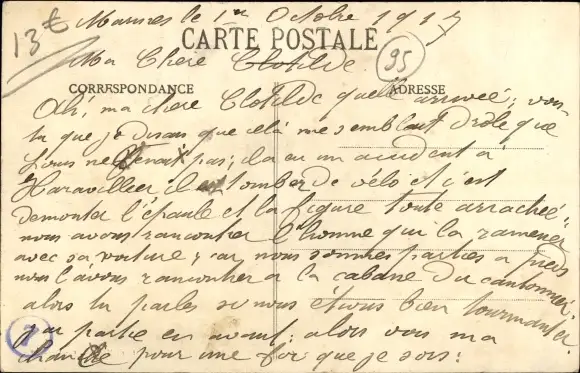 Marines le 1er Octobre 1917
13 €
CARTE POSTALE
95
Ma Chere Clotilde
CORRESPONDANCE
ADRESSE
Ah, ma chere Clotilde quelle arrivée; vois
tu que je disais que cela me semblait drôle que
Louis ne venait pas; il a eu un accident à
Haravilliers il tomber de vélo et c'est
demonter l'épaule et la figure toute arrachée;
nous avons rancontrer l'homme qui la ramener
avec sa voiture, car nous sommes parties a pieds
nous l'avons rancontrer a la cabane du cantonnier
alors tu parles si nous étions bien tourmenter.
j'ai partie en avant; alors vois ma
chance pour une foi que je sors: